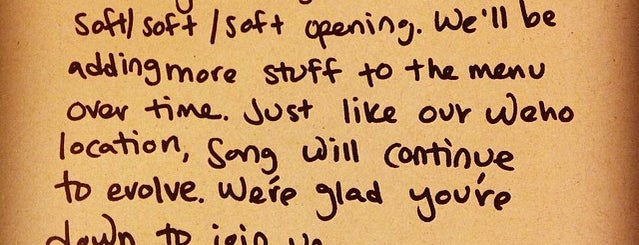 soft/soft/soft opening. We'll be
adding more stuff to the menu
over time. Just like our Weho
location, Song will continue
to evolve. We're glad you're
down to join us